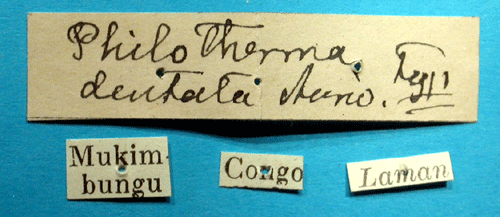 Philotherma
dentata Auriv. Typ!
Mukim-
bungu
Congo
Laman